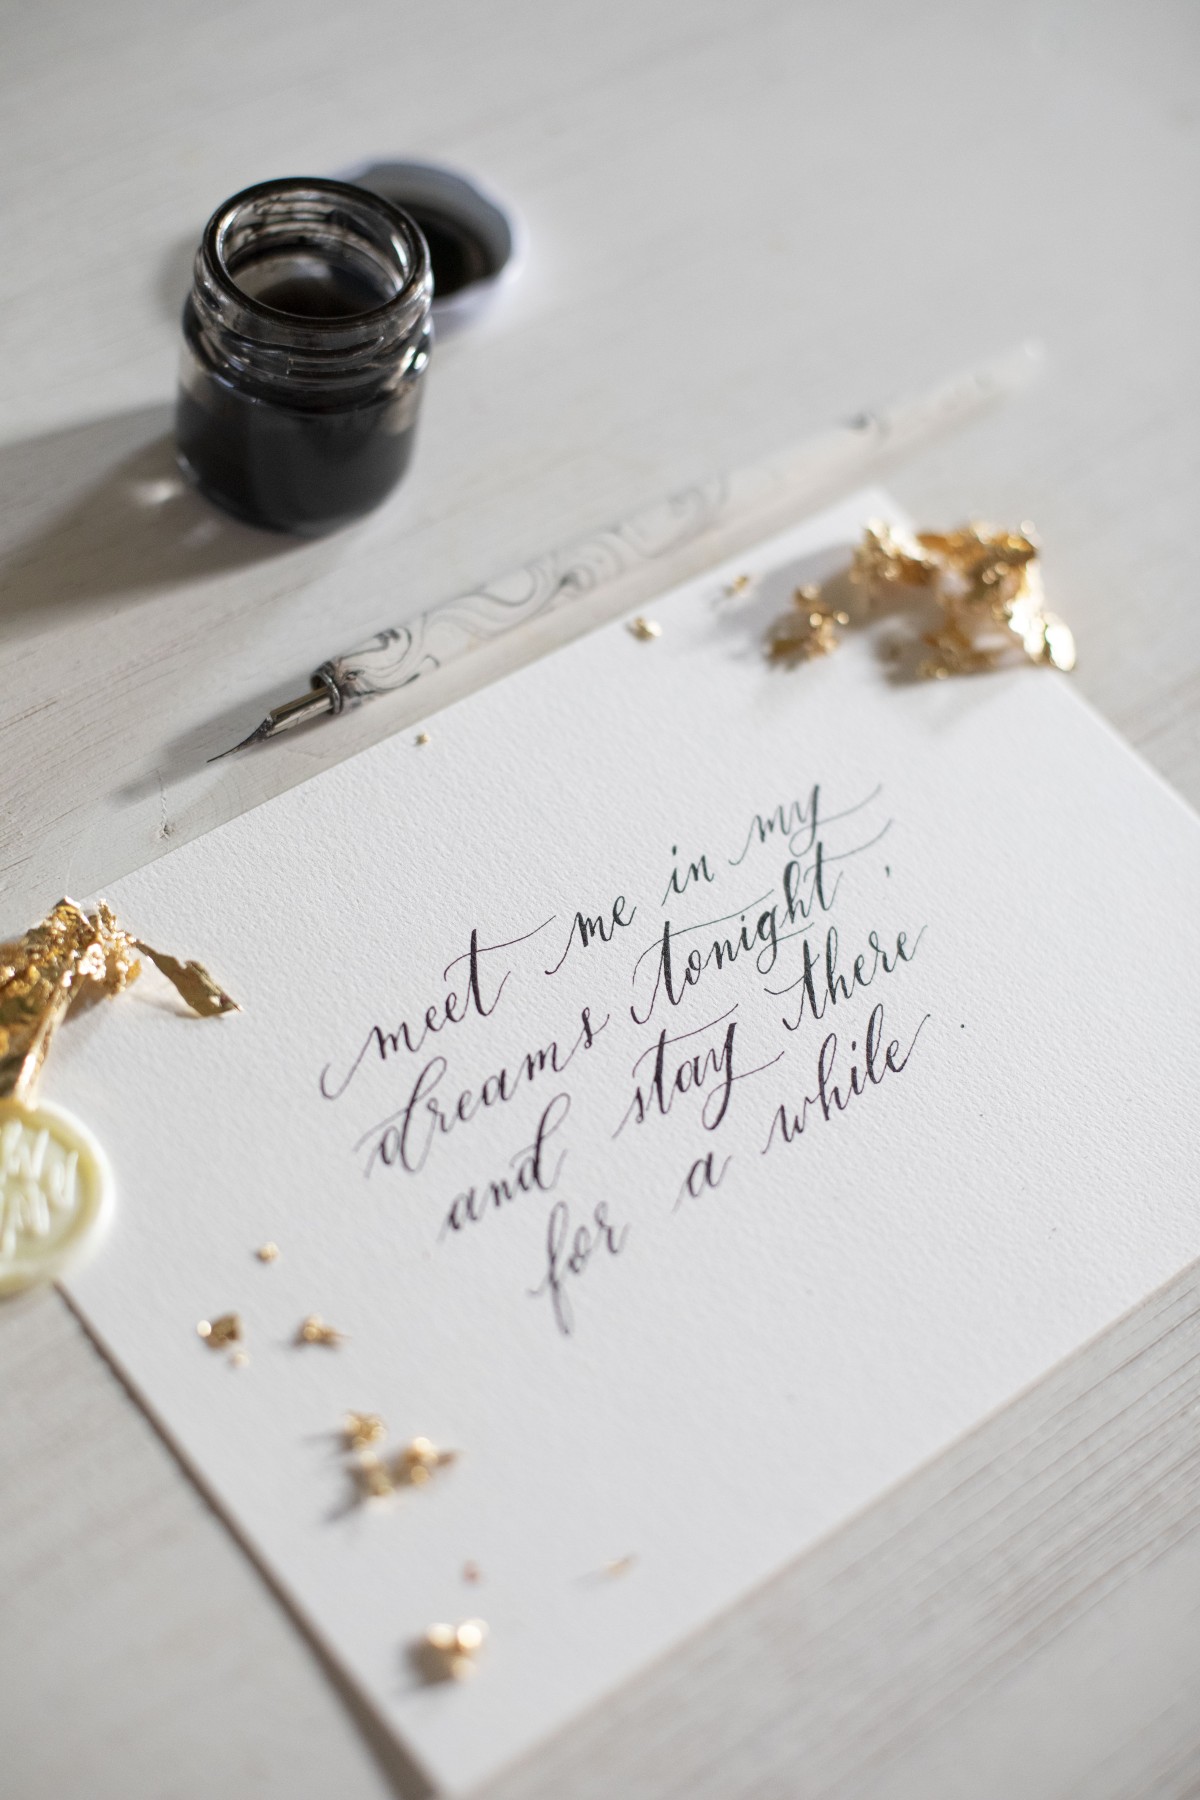 meet me in my
dreams tonight,
and stay there
for a while.